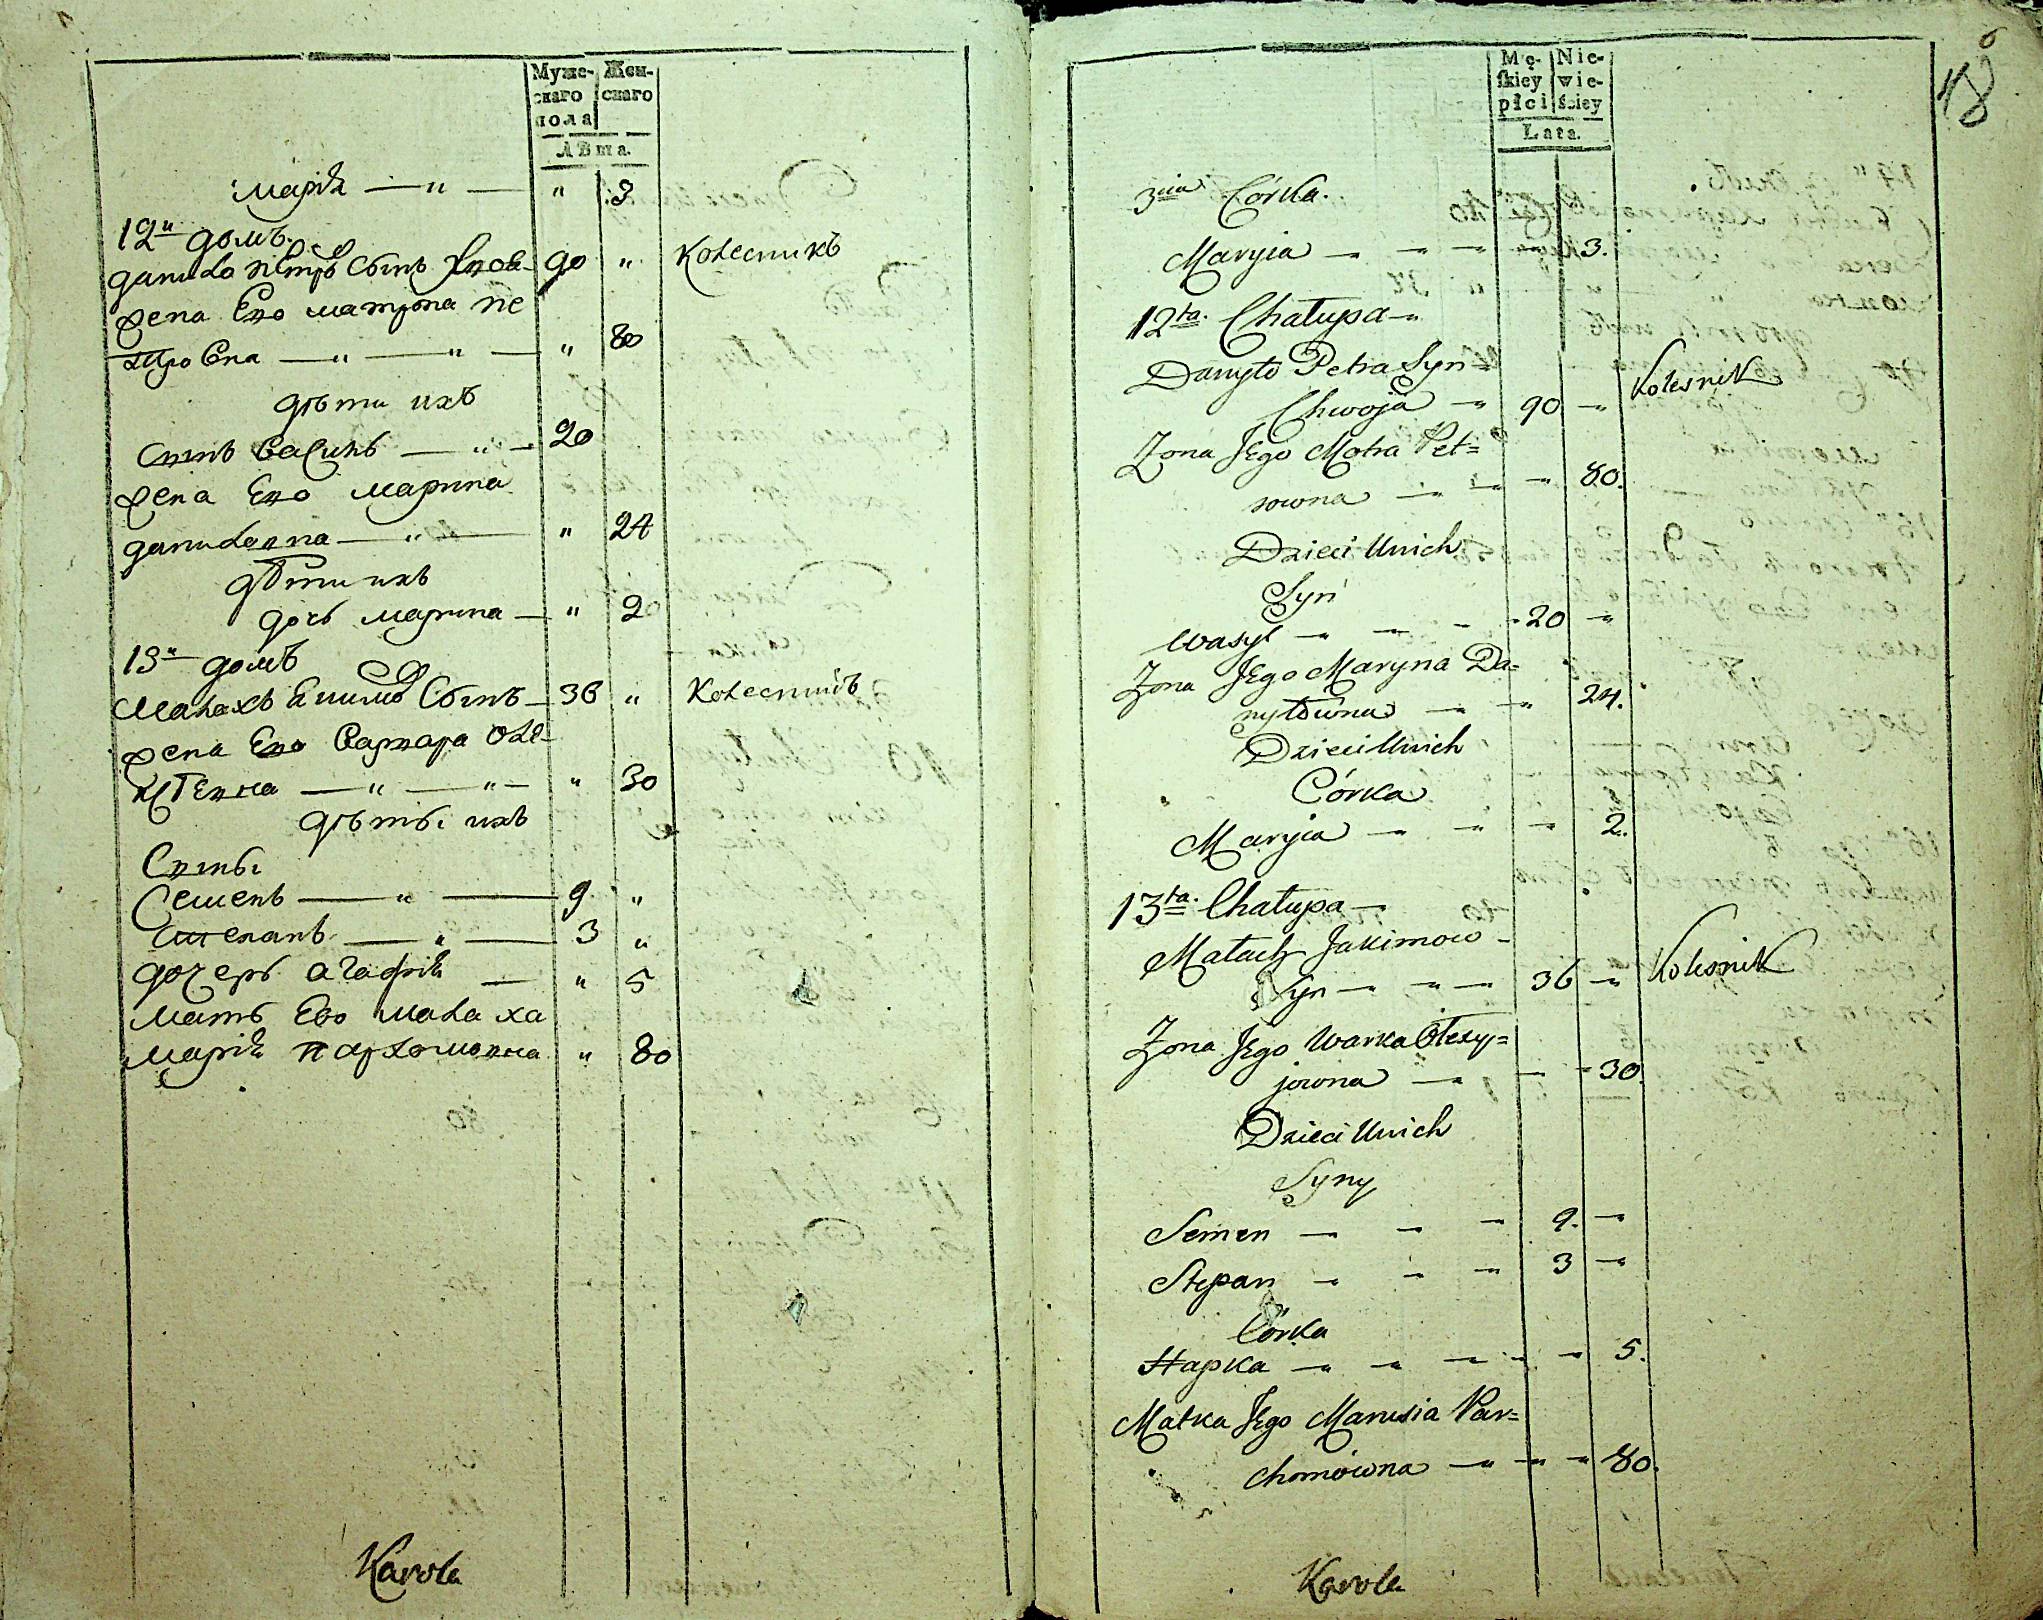 Муже-
скаго
пола
Жен-
скаго
Лѣта.
Марія — " — " 3
12й домъ.
Данило Петровъ Сынъ 90 " Колесникъ
жена Его матрона Пе
тровна — " — " — " 80
дѣти ихъ
Сынъ Василь — " — 20
жена Его марина
даниловна — " — " 24
дѣти ихъ
дочь марина — " 2
13й домъ
Малахъ Якимовъ Сынъ — 36 " Колесникъ
жена Его Варвара Оле-
ксѣевна — " — " — " 30
дѣты ихъ
Сыны
Семенъ — " — 9 "
Степанъ — " — 3 "
дочерь агафія — " 5
мать Его малаха
марія пархомовна " 80
Karola
18
6
Mę-
ſkiey
płci
Nie-
wie-
ściey
Lata.
3cia Córka.
Maryia — " — " — 3.
12ta. Chałupa — "
Danyło Petra Syn =
Chwoja — " 90 — " Kolesnik
Zona Jego Motra Pet =
rowna — " — " — " 80.
Dzieci Unich
Syn
Wasyl — " — " — 20 — "
Zona Jego Maryna Da =
nyłówna — " — " 24.
Dzieci Unich
Córka
Maryia — " — " — " 2.
13ta. Chałupa —
Małach Jakimow -
Syn — " — " — " 36 — " Kolesnik
Zona Jego Warka Ołexy =
jowna — " — " — " 30.
Dzieci Unich
Syny
Semen — " — " — " 9. — "
Stepan — " — " — " 3 — "
Córka
Hapka — " — " — " — " 5.
Matka Jego Marusia Par =
chomowna — " — " — " 80.
Karola